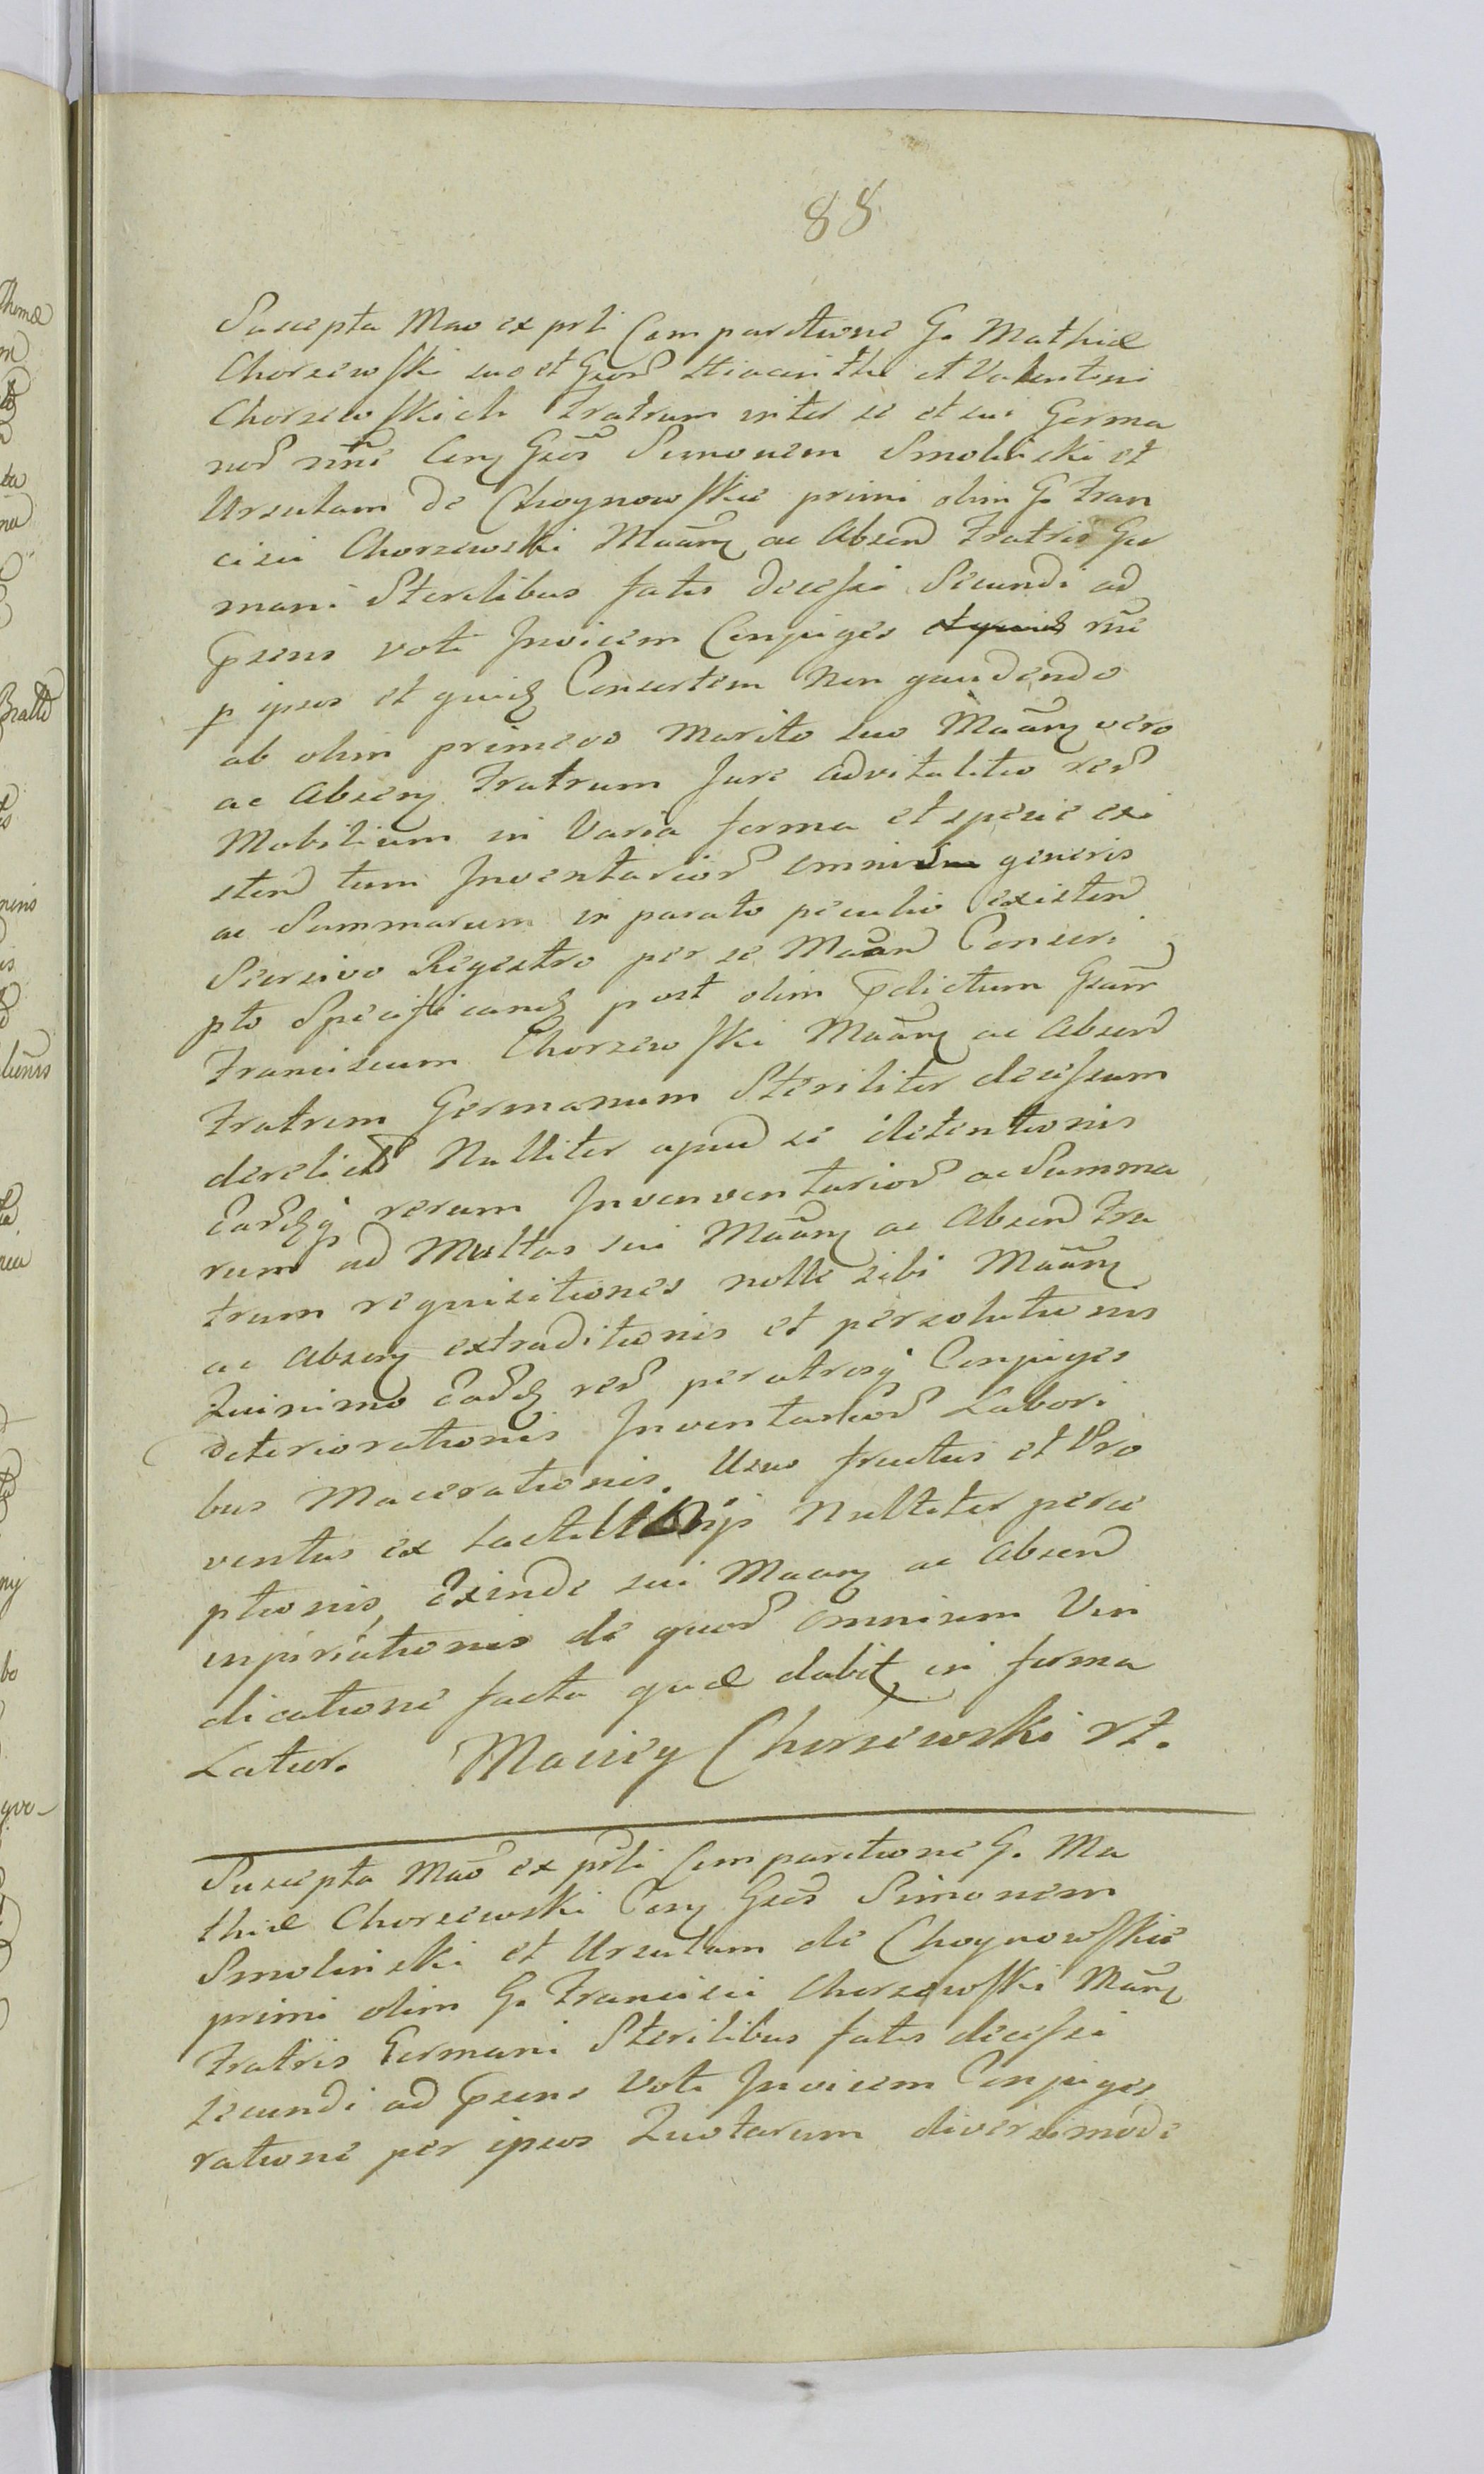 88
Suscepta Mao ex prti Comparitione G. Mathiæ
Chorzewski suo et Gsor Hiacinthi et Valentini
Chorzewskich Fratrum inter se et sui Germa
nor nne Conq Gsos Simonem Smolinski et
Ursulam de Choynowskie primi olim G. Fran
cisci Chorzewski Maanq ac Absen Fratris Ger
mani Sterilibus fatis decessi Secundi ad
psens voti Invicem Conjuges rne
p ipsos et quid Consortem Non gaudendo
ab olim primevo Marito suo Maanq vero
ac Absenq Fratrum Jure advitalitio rer
Mobilium in Varia forma et specie exi
sten tum Inventarior omnium generis
ac Summarum in parato peculio existen
Seorsivo Regestro per se Maan Conscri
pto Specificand post olim pdictum Gsum
Franciscum Chorzewski Maanq ac Absen
Fratrem Germanum Steriliter decessum
derelict Nulliter apud se detentionis
Eardq rerum Invenventarior ac Summa
rum ad Multas sui Maanq ac Absen Fra
trum requisitiones nolle sibi Maanq
ac Absenq extraditionis et persolutionis
Quinimo Eard rer per utrosq Conjuges
deteriorationis Inventarior Labori
bus Macerationis. Usus fructus et Pro
ventus ex Nulliter perce
ptionis, Exinde sui Maanq ac Absen
injuriationis de quor omnium Vin
dicatione facta quæ dabit in forma
Latior. Maciey Chorzewski rt.
Suscepta Mao ex prti Comparitione G. Ma
thiæ Chorzewski Conq Gsos Simonem
Smolinski et Ursulam de Choynowskie
primi olim G. Francisci Chorzewski Manq
Fratris Germani Sterilibus fatis decessi
secundi ad psens Voti Invicem Conjuges
ratione per ipsos Quotarum diversimode